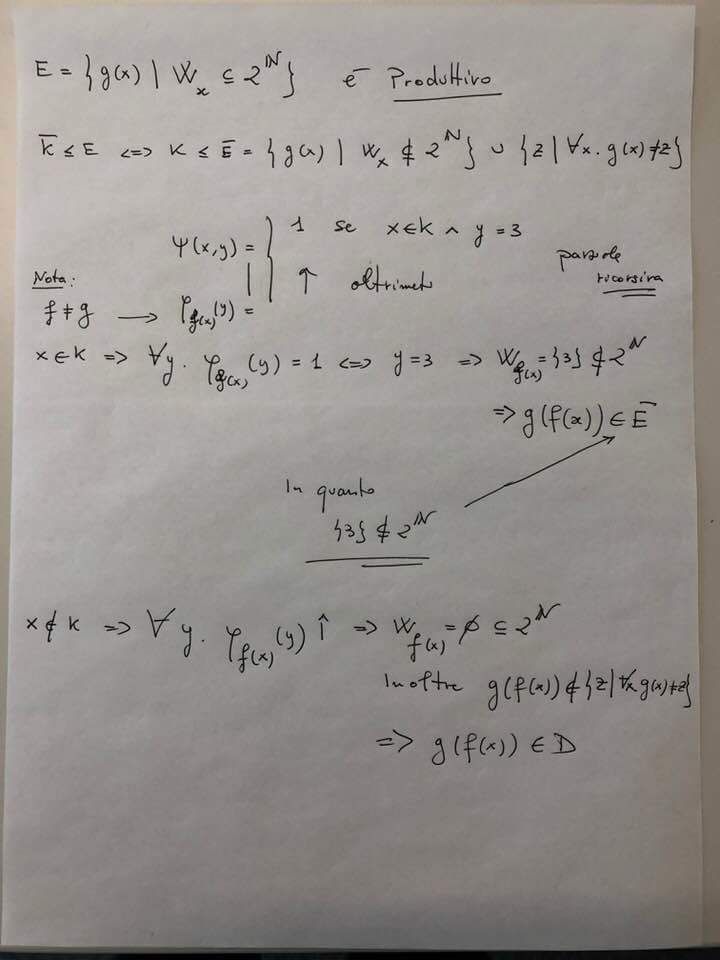 E = { g(x) | W_x ⊆ 2^ℕ } è Produttivo
K̄ ≤ E <=> K ≤ Ē = { g(x) | W_x ⊄ 2^ℕ } ∪ { z | ∀x. g(x) ≠ z }
Ψ(x,y) = { 1 se x∈K ∧ y = 3
↑ altrimenti
parziale ricorsiva
Nota:
f ≠ g → φ_f(x)(y) =
x∈K => ∀y. φ_f(x)(y) = 1 <=> y = 3 => W_f(x) = {3} ⊄ 2^ℕ
=> g(f(x)) ∈ Ē
In quanto
{3} ⊄ 2^ℕ
x∉K => ∀y. φ_f(x)(y)↑ => W_f(x) = ∅ ⊆ 2^ℕ
Inoltre g(f(x)) ∉ {z | ∀x g(x) ≠ z}
=> g(f(x)) ∈ D